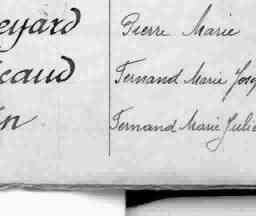 eyard Pierre Marie
caud Fernand Marie Jose
in Fernand Marie Julie